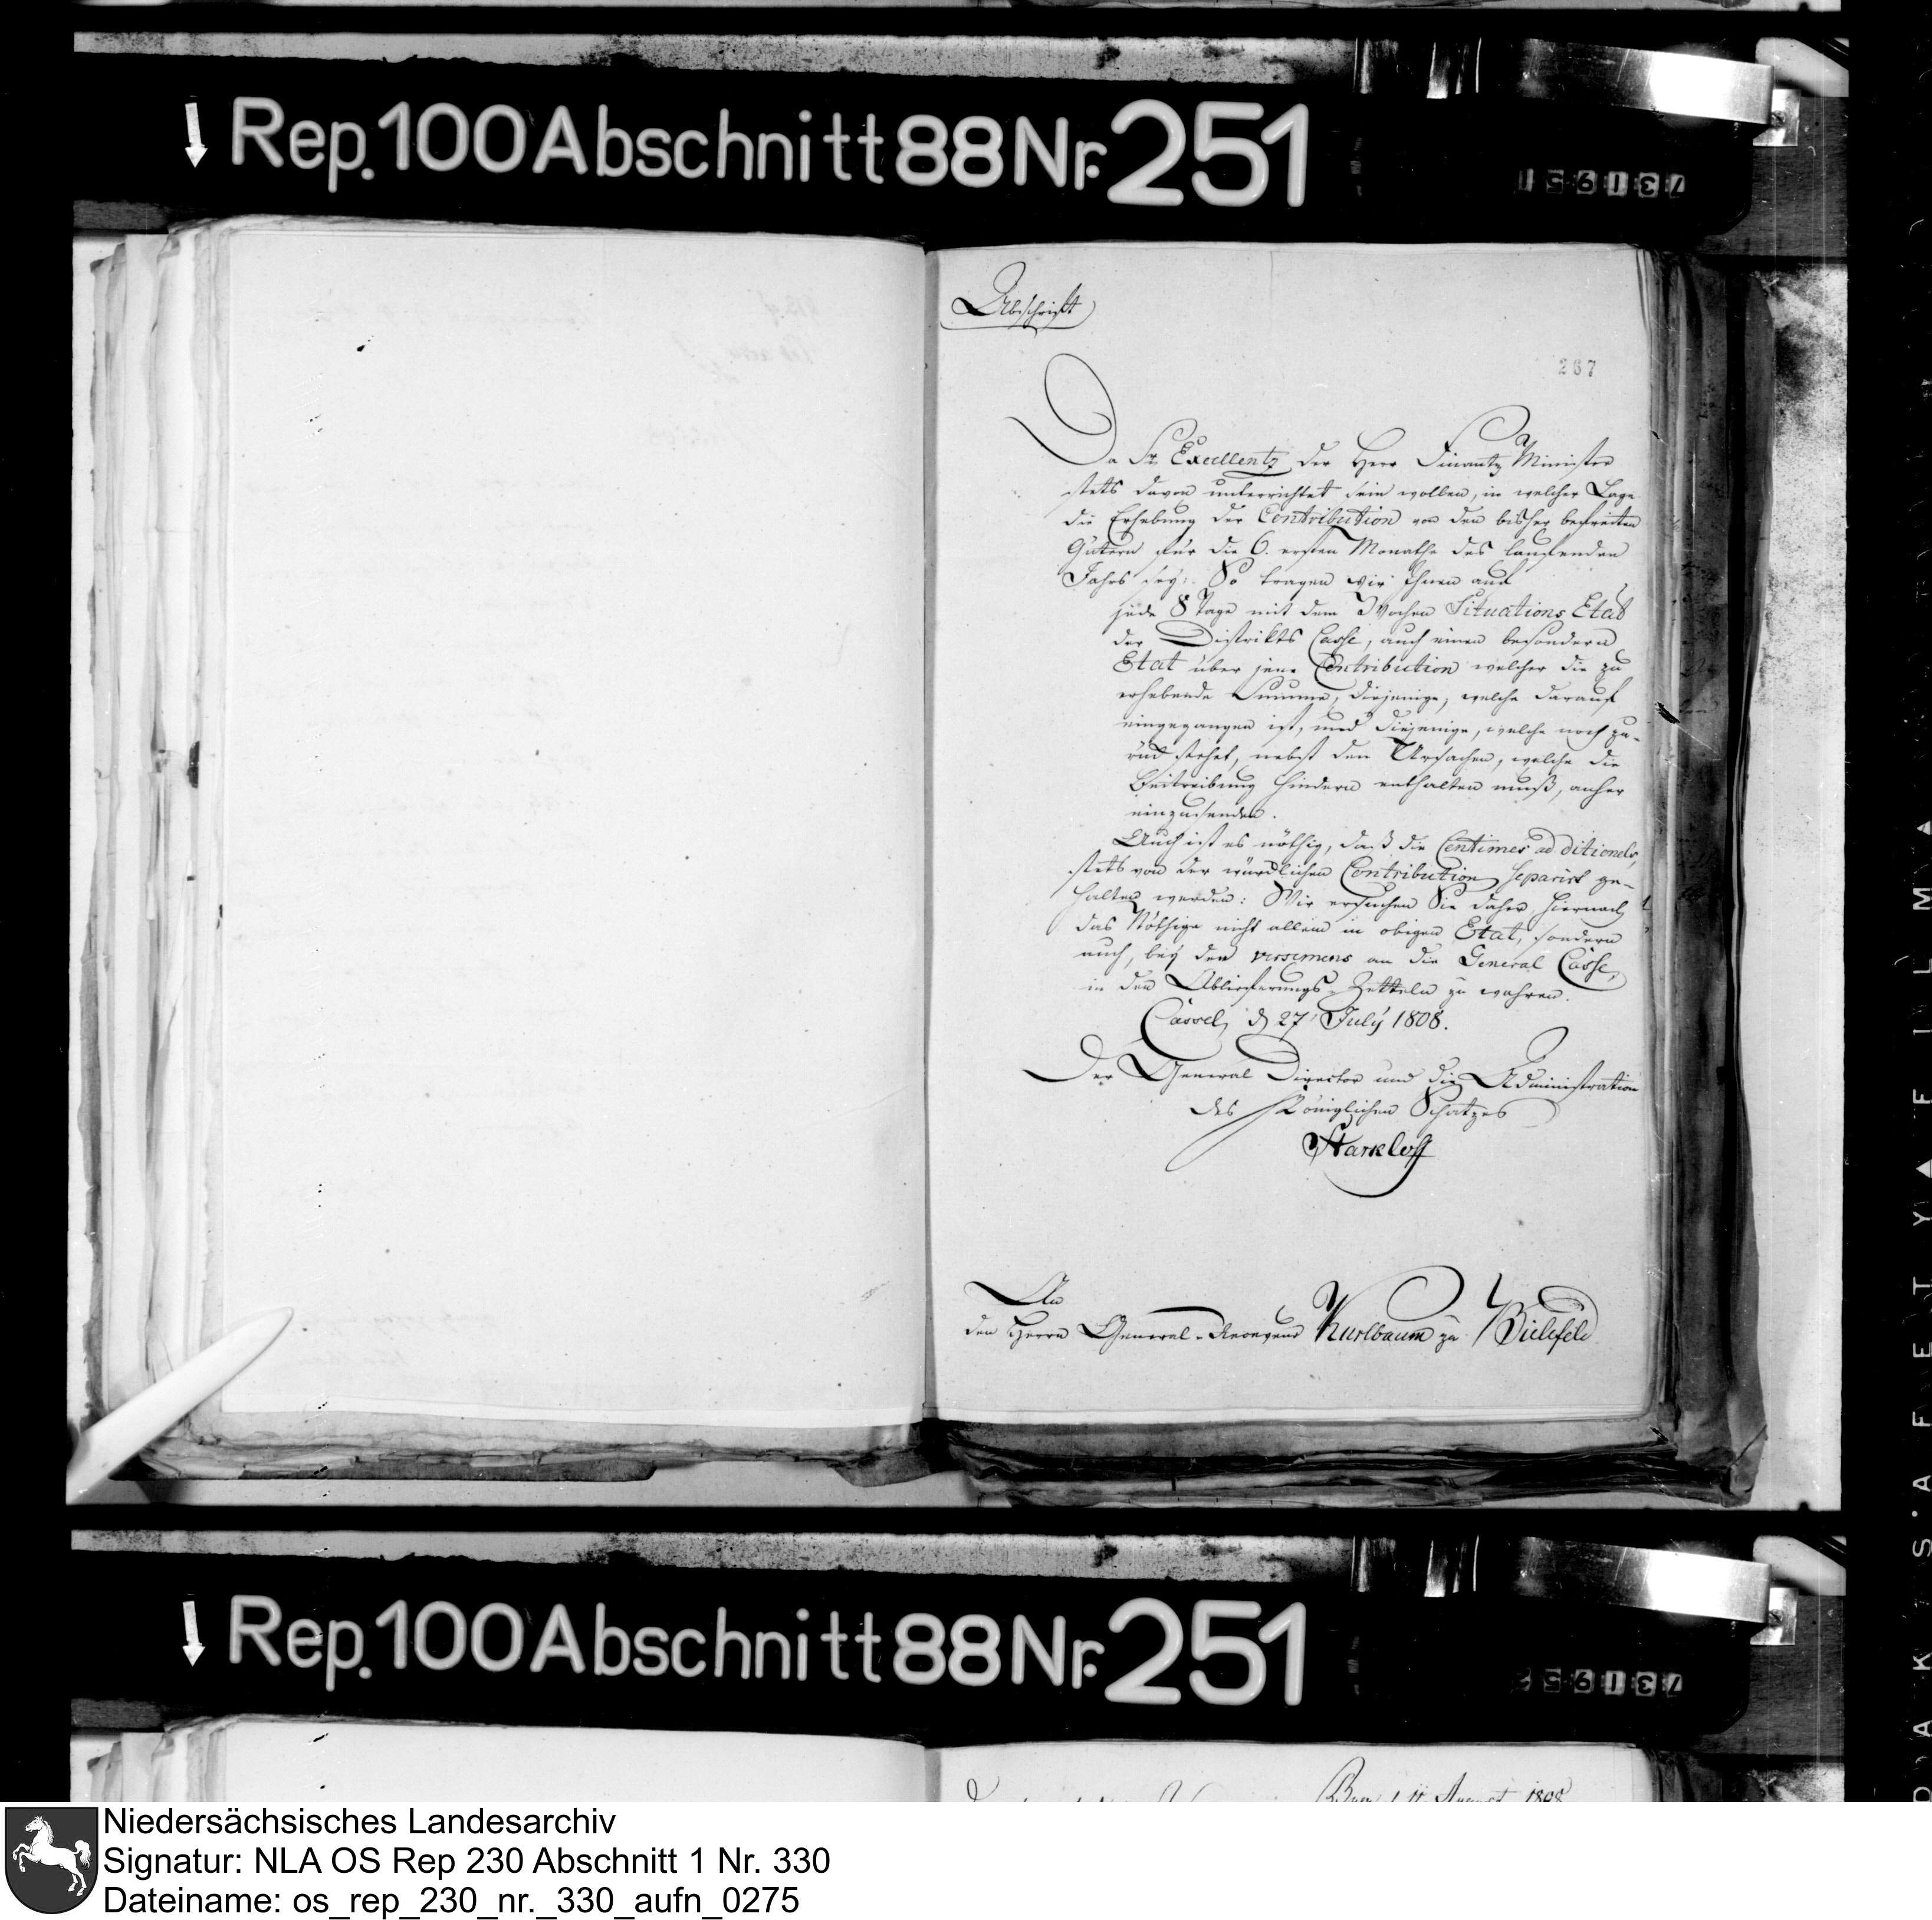 Rep. 100 Abschnitt 88 Nr. 251
731951
Abschrift
267
Da Sr. Excellentz der Herr Finantz Minister
stets davon unterrichtet sein wollen, in welcher Lage
die Erhebung der Contribution von den bisher befreiten
Gütern für die 6. ersten Monathe des laufenden
Jahrs sey: So tragen wir Ihnen auf
jede 8 Tage mit dem Wochen Situations Etat
der Distrikts Casse, auch einen besondern
Etat über jene Contribution welcher die zu
erhebende Summe, diejenige, welche darauf
eingegangen ist, und diejenige, welche noch zu-
rück stehet, nebst den Ursachen, welche die
Beitreibung hindern enthalten muß, anher
einzusenden.
Auch ist es nöthig, daß die Centimes additionels,
stets von der würcklichen Contribution separirt ge-
halten werden: Wir ersuchen Sie daher hiernach
das Nöthige nicht allein in obigen Etat, sondern
auch, bey den versemens an die General Casse,
in den Ablieferungs-Zetteln zu wahren.
Cassel, d 27 July 1808.
Der General Director und die Administration
des Königlichen Schatzes
Starkloff
An
den Herrn General-Receveur Kurlbaum zu Bielefeld
Rep. 100 Abschnitt 88 Nr. 251
731952
August 1808
Niedersächsisches Landesarchiv
Signatur: NLA OS Rep 230 Abschnitt 1 Nr. 330
Dateiname: os_rep_230_nr._330_aufn_0275